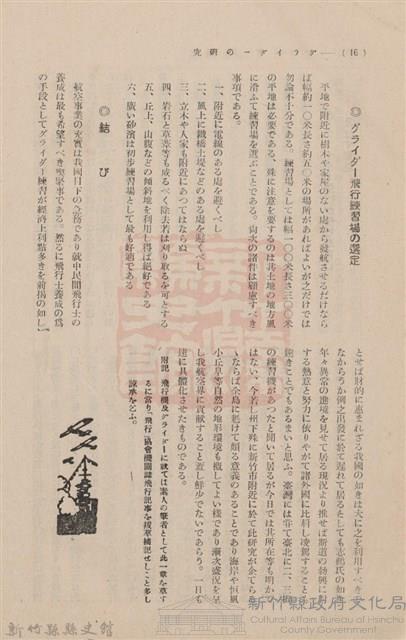 (16)―グライダーの研究
◎グライダー飛行練習場の選定
平地で附近に樹木や家屋のない處から發航させるだけなら
ば幅約一〇米長さ約五〇米の場所があればよいが之だけでは
勿論不十分である。練習場としては幅一〇〇米長さ三〇〇米
の平地は必要である。殊に注意を要するのは其土地の地方風
に沿ふて練習場を選ぶことである。尙次の諸件は顧慮すべき
事項である。
一、附近に電線のある處を避くべし
二、風上に鐵橋土堤などのある處を避くべし
三、立木や人家も附近にあつてはならぬ
四、岩石と草藁等も成るべく除去若は刈り取るを可とする
五、丘上、山腹などの傾斜地を利用し得ば絕好である
六、廣い砂濱は初步練習場として最も好適である
◎結び
航空事業の充實は我國目下の急務であり就中民間飛行士の
養成は最も希望すべき喫緊事である。然るに飛行士養成の爲
の手段としてグライダー練習が經濟上利點多きを前揭の如し
とせば財的に惠まれざる我國の如きは大に之を利用すべき
ならうか例之出發に於て遲れて居るとしても志鶴氏の如き
年々異常の進境を見せて居る現況より推せば斯道の勃興に對
する熱意と努力に依りやがて諸外國に比肩し凌駕すること
難きことでもあるまいと思ふ。臺灣には嘗て臺北に二、三
の練習機があつたと聞いて居るが今日では其所在等も明かで
はない、今若し州下殊に新竹市附近に於て此研究が企てら
いならば全島に魁けて頗る意義のあることであり海岸や恒風
小丘阜等自然の地形環境も極してよい樣であり漸次盛況を呈
し我航空界に貢獻すること蓋し鮮少でないであらう。一日も
速に具體化させたきものである。
附記 飛行機及グライダーに就ては素人の筆者として此一章を草す
るに當り、「飛行」協會機關雜誌飛行記事を拔萃補記せしこと多し
諒承を乞ふ。
新竹縣政府文化局
Cultural Affairs Bureau of Hsinchu County Government
新竹縣縣史館